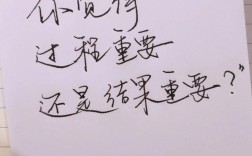 你觉得
过程重要
还是结果重要？”